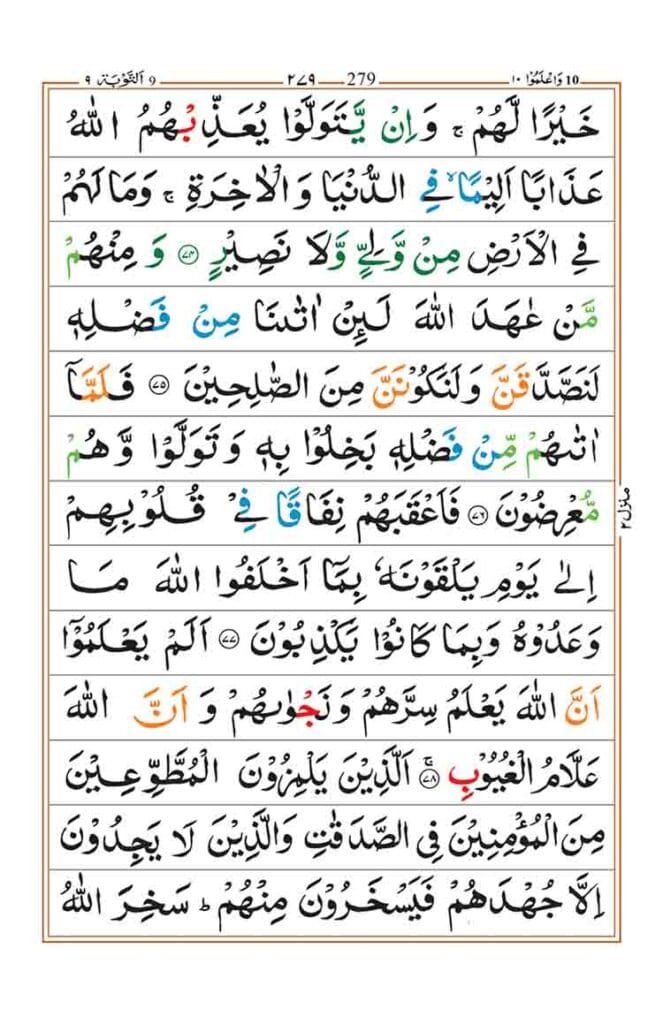 وَاعْلَمُوْٓا ١٠ 10 279 ٢٧٩ اَلتَّوْبَة ٩ 9
خَيْرًا لَّهُمْ ۚ وَاِنْ يَّتَوَلَّوْا يُعَذِّبْهُمُ اللّٰهُ
عَذَابًا اَلِيْمًا ۙ فِي الدُّنْيَا وَالْاٰخِرَةِ ۚ وَمَا لَهُمْ
فِي الْاَرْضِ مِنْ وَّلِيٍّ وَّلَا نَصِيْرٍ ﴿٧٤﴾ وَمِنْهُمْ
مَّنْ عٰهَدَ اللّٰهَ لَئِنْ اٰتٰىنَا مِنْ فَضْلِهٖ
لَنَصَّدَّقَنَّ وَلَنَكُوْنَنَّ مِنَ الصّٰلِحِيْنَ ﴿٧٥﴾ فَلَمَّآ
اٰتٰىهُمْ مِّنْ فَضْلِهٖ بَخِلُوْا بِهٖ وَتَوَلَّوْا وَّهُمْ
مُّعْرِضُوْنَ ﴿٧٦﴾ فَاَعْقَبَهُمْ نِفَاقًا فِيْ قُلُوْبِهِمْ
اِلٰى يَوْمِ يَلْقَوْنَهٗ بِمَآ اَخْلَفُوا اللّٰهَ مَا
وَعَدُوْهُ وَبِمَا كَانُوْا يَكْذِبُوْنَ ﴿٧٧﴾ اَلَمْ يَعْلَمُوْٓا
اَنَّ اللّٰهَ يَعْلَمُ سِرَّهُمْ وَنَجْوٰىهُمْ وَاَنَّ اللّٰهَ
عَلَّامُ الْغُيُوْبِ ۚ ﴿٧٨﴾ اَلَّذِيْنَ يَلْمِزُوْنَ الْمُطَّوِّعِيْنَ
مِنَ الْمُؤْمِنِيْنَ فِي الصَّدَقٰتِ وَالَّذِيْنَ لَا يَجِدُوْنَ
اِلَّا جُهْدَهُمْ فَيَسْخَرُوْنَ مِنْهُمْ ؕ سَخِرَ اللّٰهُ
منزل ٢